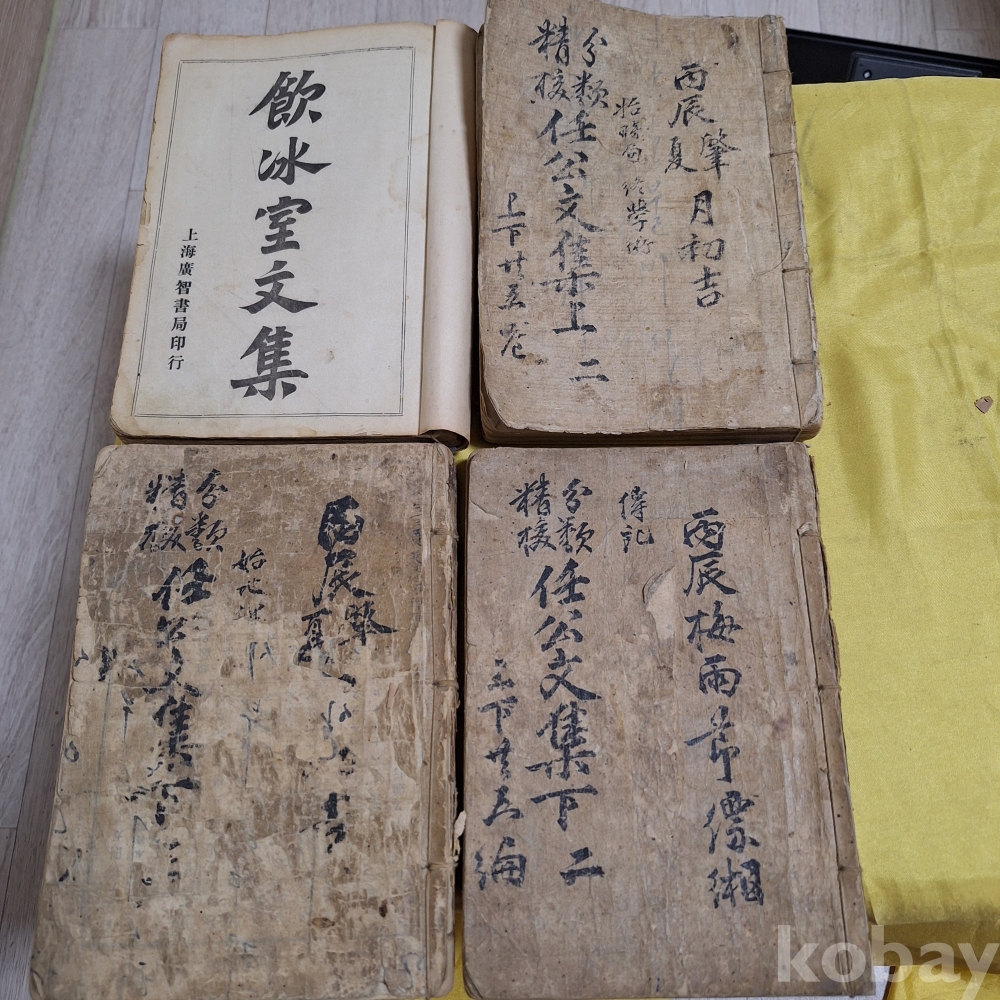 飲冰室文集
上海廣智書局印行
丙辰夏肇月初吉
始 終學術
分類
精校
任公文集上 二
上下廿五卷
丙辰夏肇
始地理
分類
精校
任公文集
丙辰梅雨節縹緗
傳記
分類
精校
任公文集下 二
上下廿五編
kobay